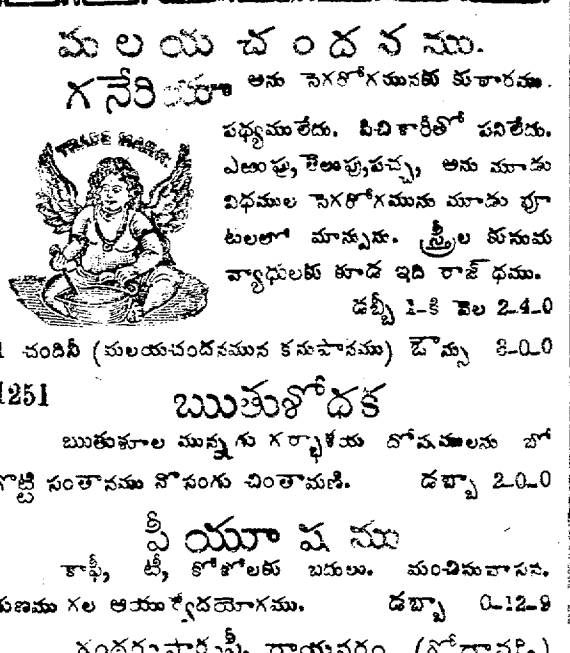 మలయచందనము.
గనేరియా అను సెగరోగమునకు కుఠారము.
TRADE MARK
పథ్యములేదు. పిచికారీతో పనిలేదు.
ఎఱుపు, తెలుపు, పచ్చ, అను మూడు
విధముల సెగరోగమును మూడు పూ
టలలో మాన్పును. స్త్రీల కుసుమ
వ్యాధులకు కూడ ఇది
డబ్బీ 1-కి వెల 2-4-0
చందినీ (మలయచందనమున కనుపానము) ఔన్సు 8-0-0
1251
ఋతుశోధక
ఋతుశూల మున్నగు గర్భాశయ దోషములను బో
గొట్టి సంతానము నొసంగు చింతామణి. డబ్బా 2-0-0
పీయూషము
కాఫీ, టీ, కోకోలకు బదులు. మంచిసువాసన.
గుణము గల ఆయుర్వేదయోగము. డబ్బా 0-12-9